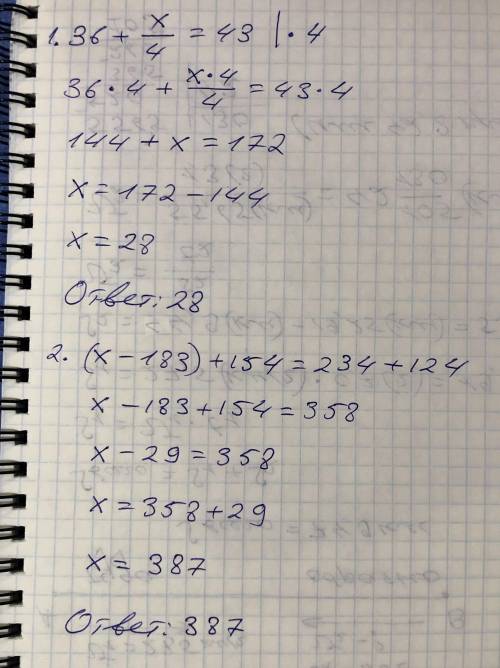 1. 36 + x/4 = 43 | · 4
36 · 4 + x·4/4 = 43 · 4
144 + x = 172
x = 172 - 144
x = 28
Ответ: 28
2. (x - 183) + 154 = 234 + 124
x - 183 + 154 = 358
x - 29 = 358
x = 358 + 29
x = 387
Ответ: 387